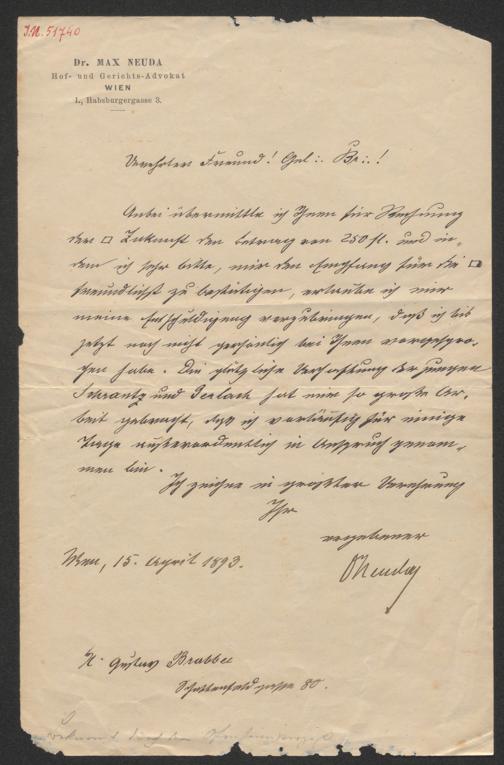 I.N. 51740
Dr. MAX NEUDA
Hof- und Gerichts-Advokat
WIEN
I., Habsburgergasse 3.
Verehrter Freund! Gel:. Br:.!
Anbei übermittle ich Ihnen für Rechnung
der □ Zukunft den Betrag von 250 fl. und in-
dem ich sehr bitte, mir den Empfang für die □
freundlichst zu bestätigen, erlaube ich mir
meine Entschuldigung vorzubringen, daß ich bis
jetzt noch nicht persönlich bei Ihnen vorgespro-
chen habe. Die plötzliche Verhaftung der jungen
und Gerlach hat mir so große Ar-
beit gebracht, daß ich vorläufig für einige
Tage außerordentlich in Anspruch genom-
men bin.
Ich zeichne in größter Verehrung
Ihr
ergebener
Neuda
Wien, 15. April 1893.
H. Gustav Brabbee
Schottenfeldgasse 80.